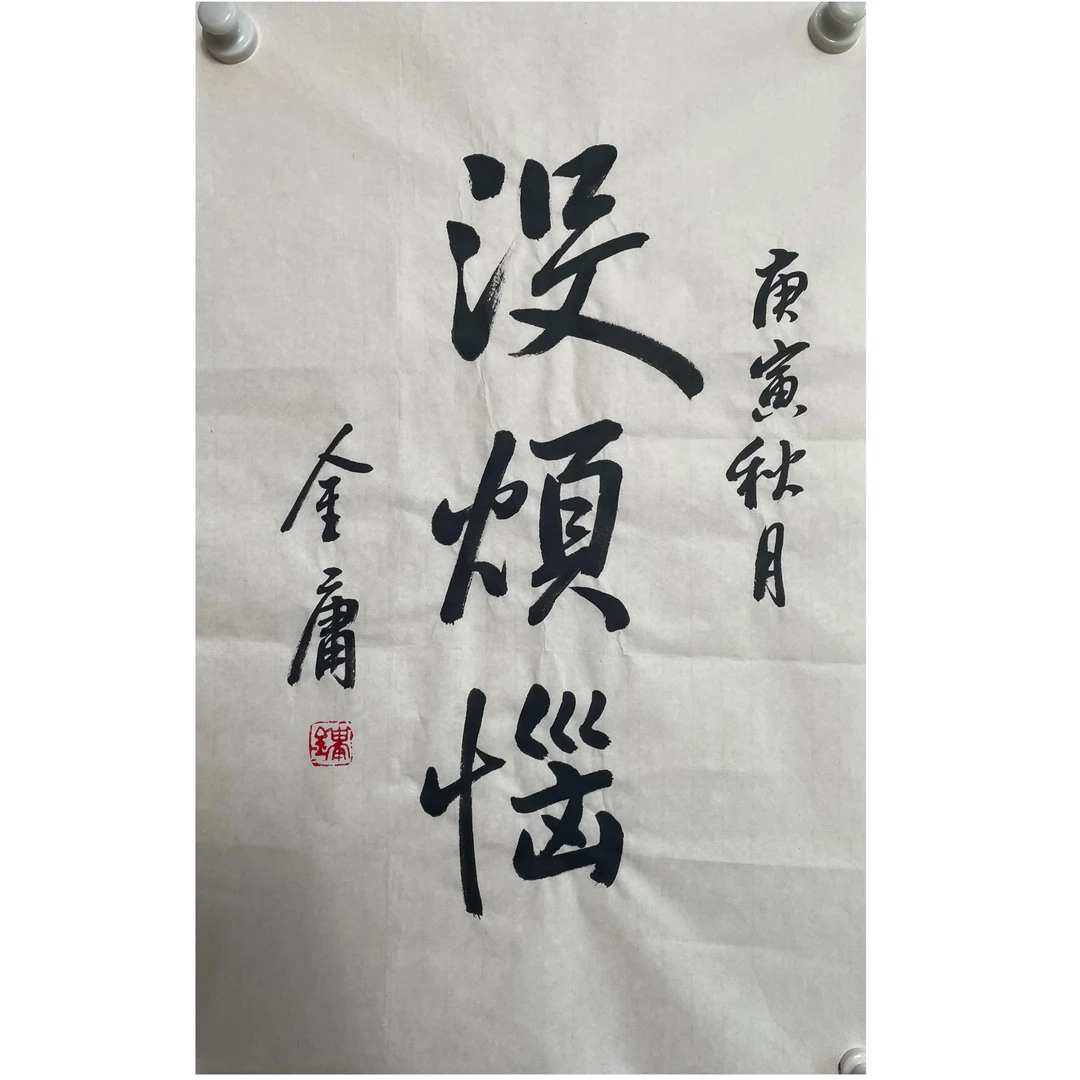 庚寅秋月
没煩惱
金庸